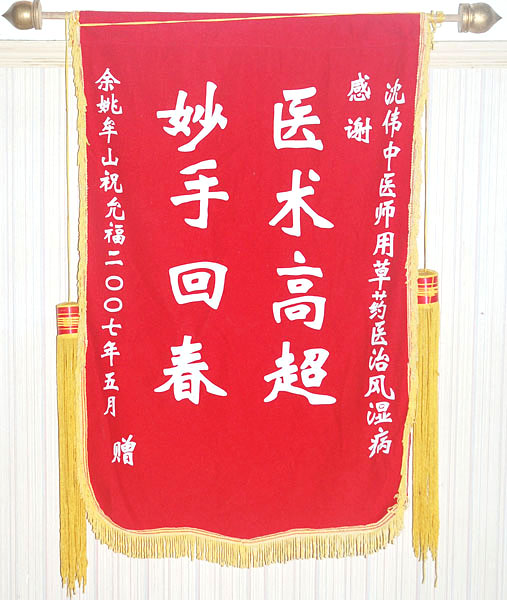 感谢
沈伟中医师用草药医治风湿病
医术高超
妙手回春
余姚牟山祝允福二〇〇七年五月
赠